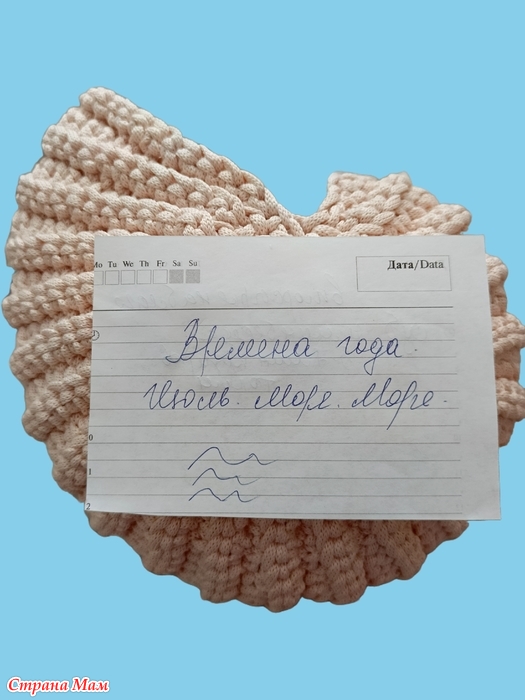 Mo Tu We Th Fr Sa Su
Дата/Data
Времена года.
Июль. Моря. Море.
0
1
2
Страна Мам